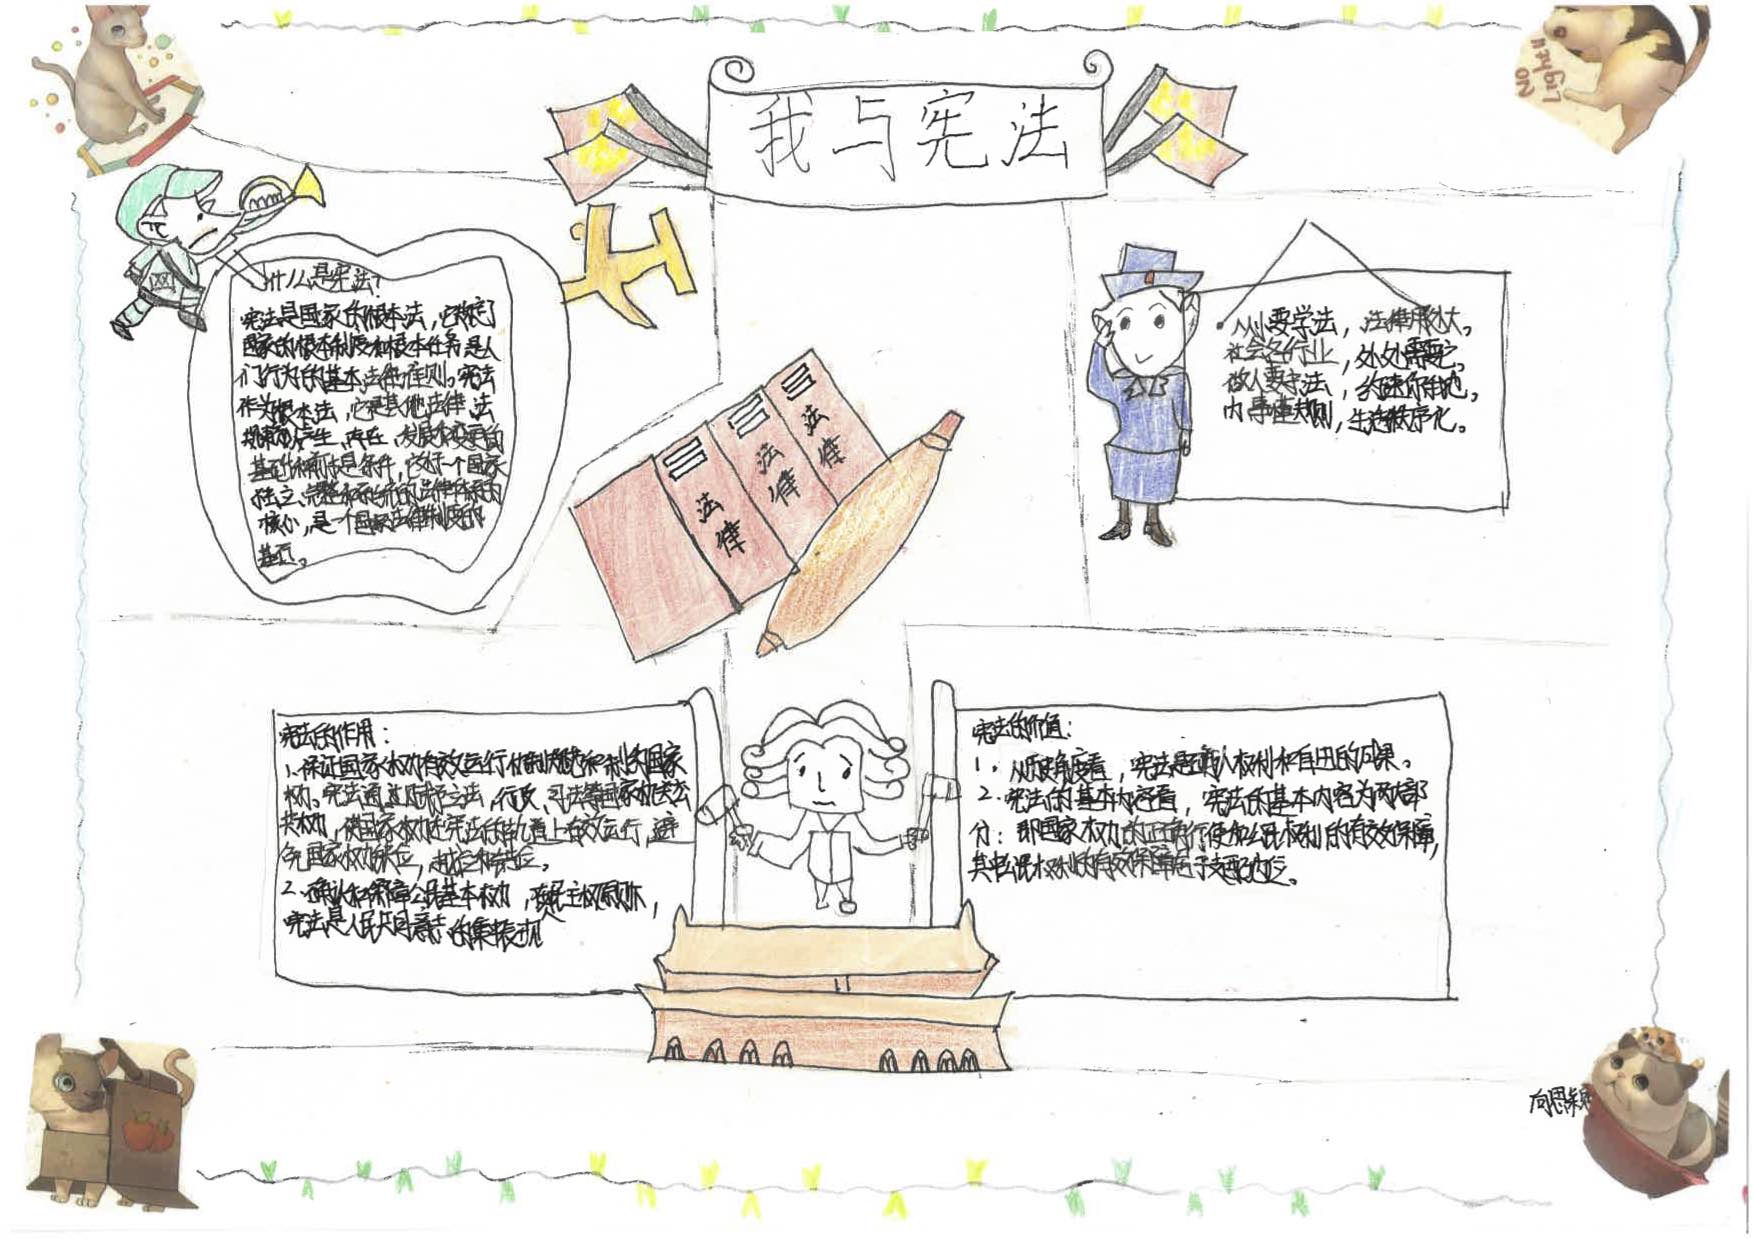 我与宪法
NO
Light
什么是宪法?
宪法是国家的根本法,它规定了
国家的根本制度和根本任务是人
们行为的基本法律准则。宪法
作为根本法,它是其他法律、法
规赖以产生、存在、发展和变更的
基础和前提条件,它是一个国家
独立、完整和系统的法律体系的
核心,是一个国家法律制度的
基石。
从小要学法,法律用处大。
社会各行业,处处需要它。
做人要守法,约束你我他。
内事懂规则,生活秩序化。
法律
法律
法律
宪法的作用:
1.保证国家权力有效运行 规范和制约国家
权力。宪法通过 立法,行政、司法等国家机关公
共权力,使国家权力在宪法的轨道上有效运行,避
免国家权力缺位,越位和错位。
2.确认和保障公民基本权力,在民主权原则下,
宪法是人民共同意志的集中表现
宪法的价值:
1.从历史角度看,宪法是确认人权利和自由的成果。
2.宪法的基本内容看,宪法的基本内容为两大部
分:即国家权力的正确行使和公民权利的有效保障,
其中公民权利的有效保障居于支配地位。
向思颖